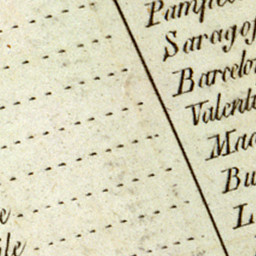 Pampel
Saragof
Barcelon
Valenti
Mad
Bu
L
e
ile